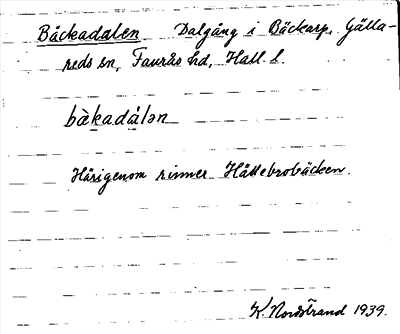 Bäckadalen Dalgång i Bäckarp, Gälla-
reds sn, Faurås hd, Hall. l.
bàkadàlən
Härigenom rinner Hättebrobäcken.
K. Nordstrand 1939.